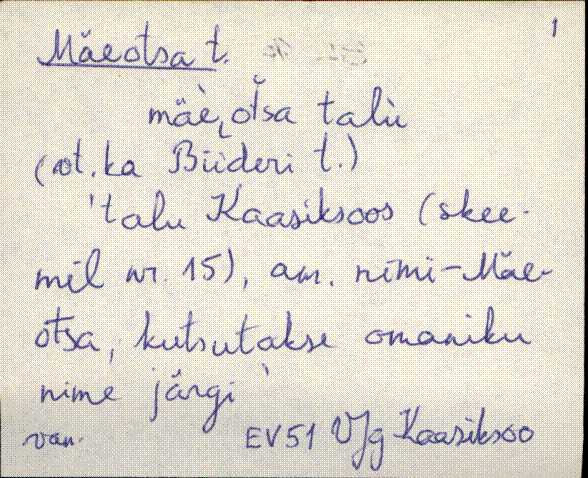 1
Mäeotsa t.
mäè, otsa talù
(vt. ka Biideri t.)
'talu Kaasiksoos (skee-
mil nr. 15), am. nimi-Mäe-
otsa, kutsutakse omaniku
nime järgi
van. EV51 VJg Kaasiksoo